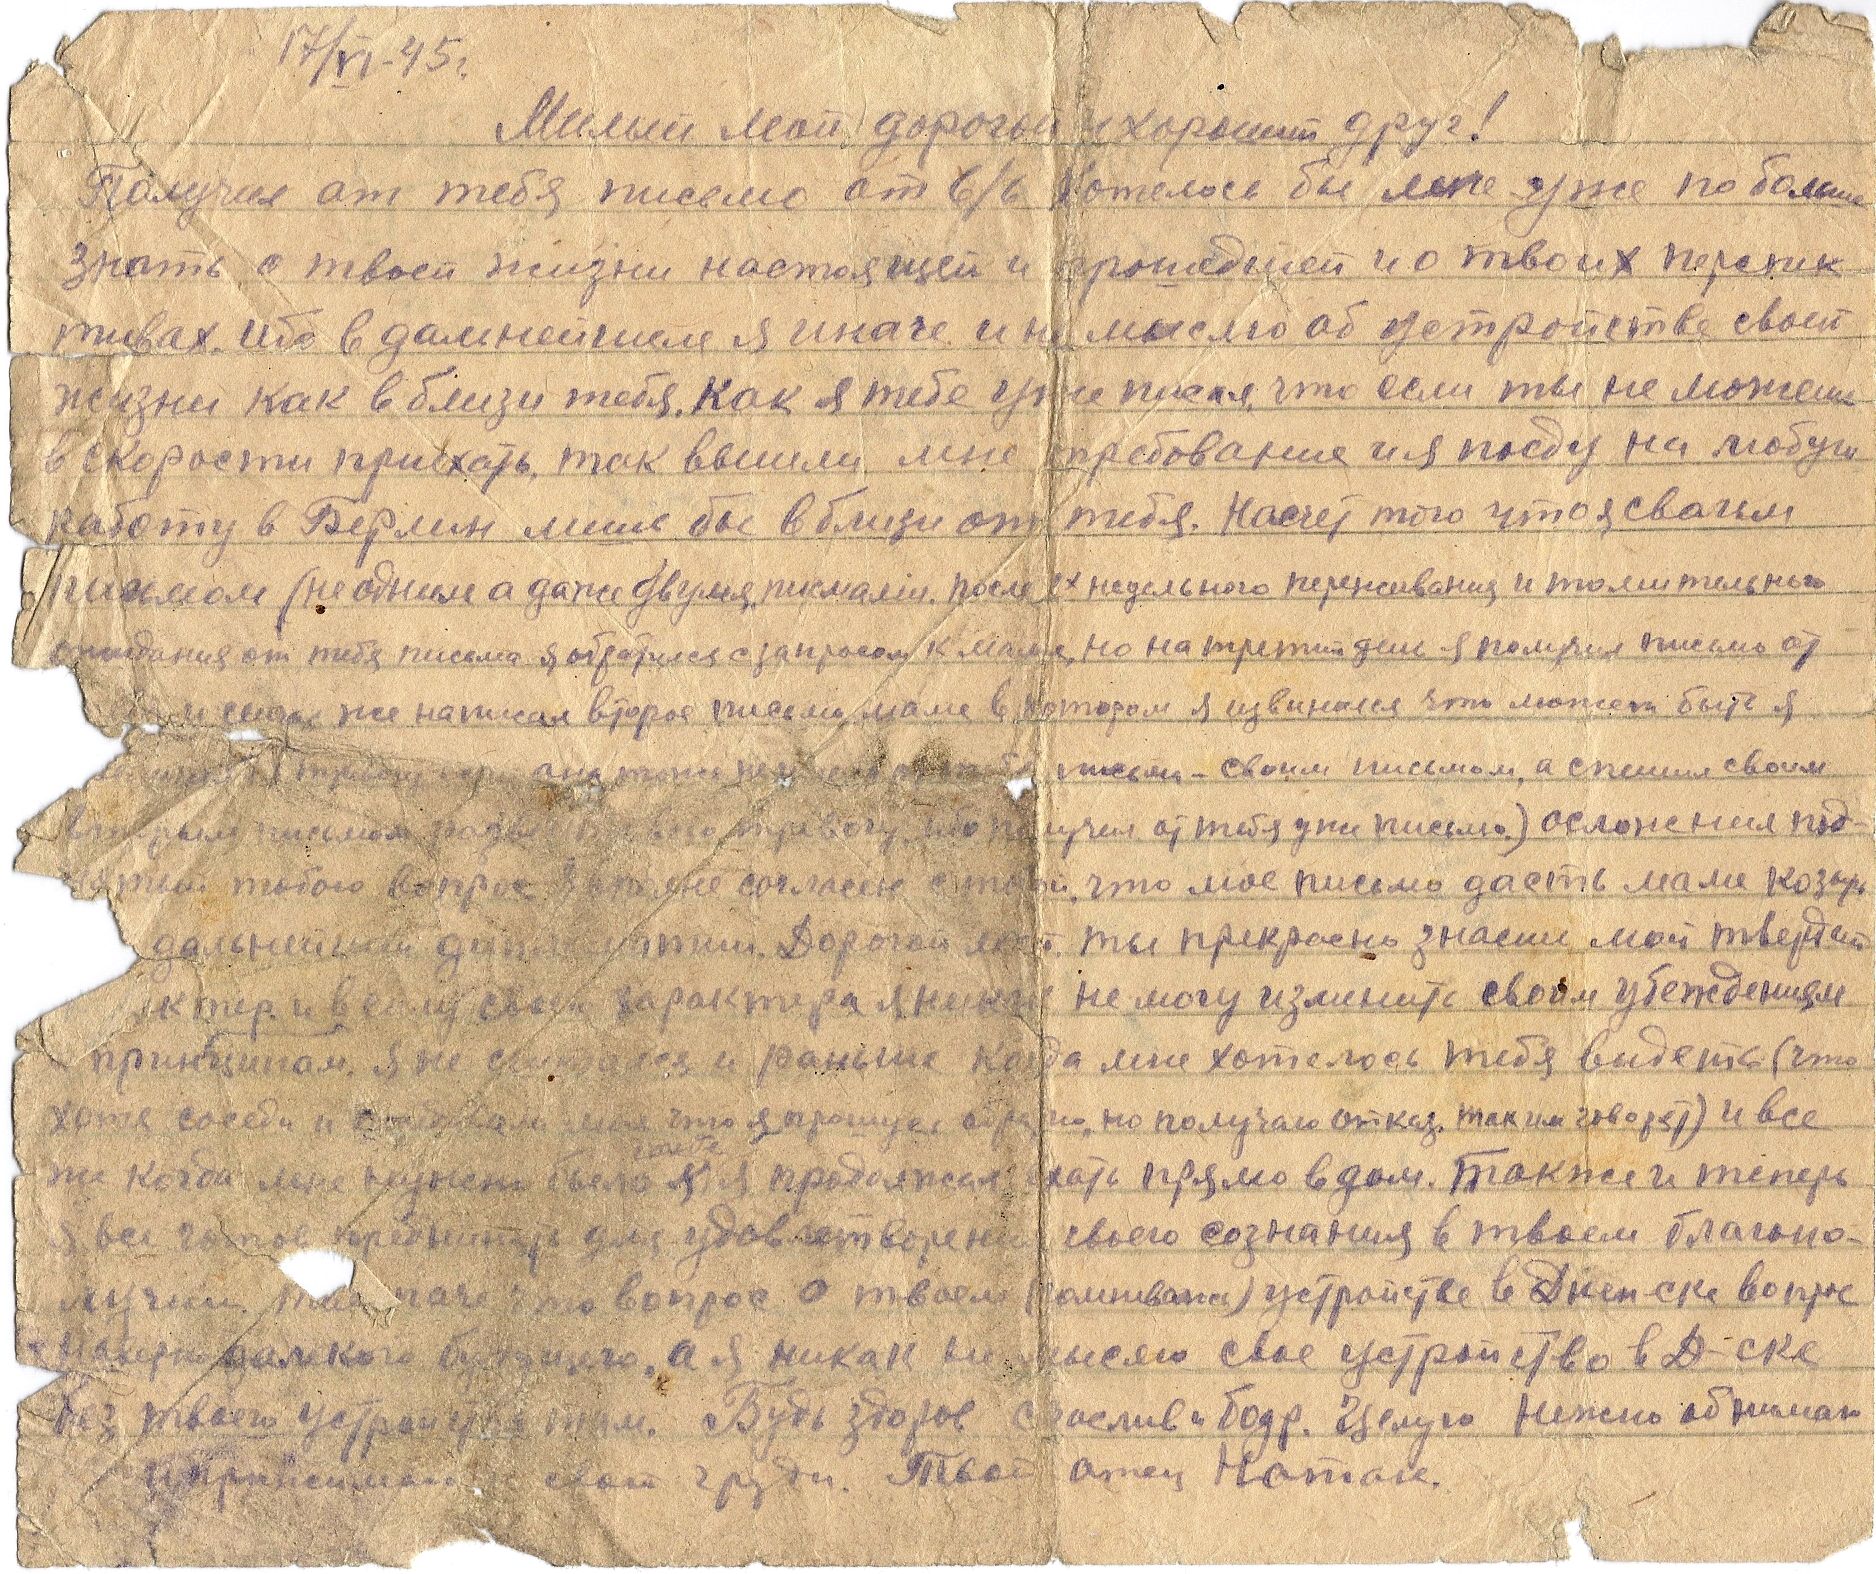 17/VI-45г.
Милый мой дорогой и хороший друг!
Получил от тебя письмо от 6/6 Хотелось бы мне уже побольше
знать о твоей жизни настоящей и прошедшей и о твоих перспек-
тивах. ибо в дальнейшем я иначе и не мыслю об устройстве своей
жизни как вблизи тебя. Как я тебе уже писал, что если ты не можешь
вскорости приехать, так вышли мне требование и я поеду на любую
работу в Берлин лишь бы вблизи от тебя. Насчет того что я своим
письмом (не одним а даже двумя письмами. после 2х недельного переживания и томительного
ожидания от тебя письма я обратился с запросом к маме, но на третий день я получил письмо от
и сразу же написал второе письмо маме в котором я извинился что может быть я
она тоже не письма - своим письмом, а спешил своим
вторым письмом тревогу, ибо получил от тебя уже письмо.) осложнения под-
тобою вопрос я не согласен с тобой, что мое письмо дасть маме козырь
дальнейшей Дорогой мой. ты прекрасно знаешь мой твердый
и в силу своего характера я никак не могу изменить своим убеждениям
принципам. я не считался и раньше когда мне хотелось тебя видеть (что
хотя соседи и что я обратно, но получаю отказ. так им говорят) и все
же когда мне нужно было я продолжал ехать прямо в дом. Также и теперь
я все для удовлетворения своего сознания в твоем благопо-
лучии. тем паче что вопрос о твоем устройстве в Днен-ске вопрос
далекого будущего, а я никак не мыслю свое устройство в Д-ске
без твоего устройства там. Будь здоров счаслив и бодр. Целую нежно обнимаю
и прижимаю к своей груди. Твой отец Натан.